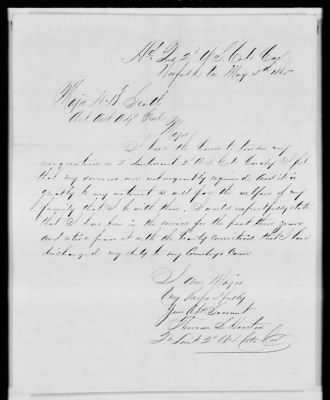 Hd Qrs 2d U.S. Cold Cav
Norfolk Va May 5th 1865
Major H. B. Scott
Act Asst Adjt Genl
Major
I have the honor to tender my
resignation as 2d Lieutenant 2d U.S. Cold Cavalry. I feel
that my services are not urgently required. And it is
greatly to my interest as well for the welfare of my
family that I be with them. I would respectfully state
that I have been in the service for the past three years
and retire from it with the hearty conviction that I have
discharged my duty to my Country's Cause
I am Major
Very Respectfully
Your Obt Servant
Thomas S.
2d Lieut 2d U.S. Cold Cav